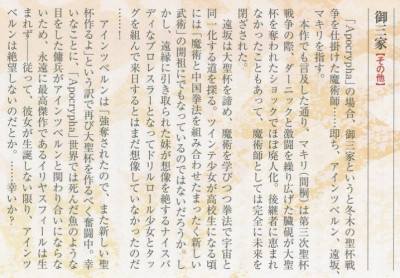 御三家【その他】
「Apocrypha」の場合、御三家というと冬木の聖杯戦
争を仕掛けた魔術師……即ち、アインツベルン、遠坂、
マキリを指す。
本作でも言及した通り、マキリ(間桐)は第三次聖杯
戦争の際、ダーニックと激闘を繰り広げた臓硯が大聖
杯を奪われたショックでほぼ廃人化。後継者に恵まれ
なかったこともあって、魔術師としては完全に未来を
閉ざされた。
遠坂は大聖杯を諦め、魔術を学びつつ拳法で宇宙と
同一化する道を探る。ツインテ少女が高校生になる頃
には「魔術と中国拳法を組み合わせたまったく新しい
武術」の開祖にでもなっているのではないだろうか。し
かし、遠縁に引き取られた妹が想像を絶するナイスバ
ディなプロレスラーとなってドリルロール少女とタッ
グを組んで来日するとはまだ想像していなかったのだ
アインツベルンは「強奪されたので、また新しい聖
杯作るよ」という訳で再び大聖杯を作るべく奮闘中。幸
いなことに、「Apocrypha」世界では死んだ魚のような
目をした傭兵がアインツベルンと関わり合いにならな
いため、永遠に最高傑作であるイリヤスフィールは生
まれず、従って、彼女が生誕しない限り、アインツ
ベルンは絶望しないのだとか。……幸いか?